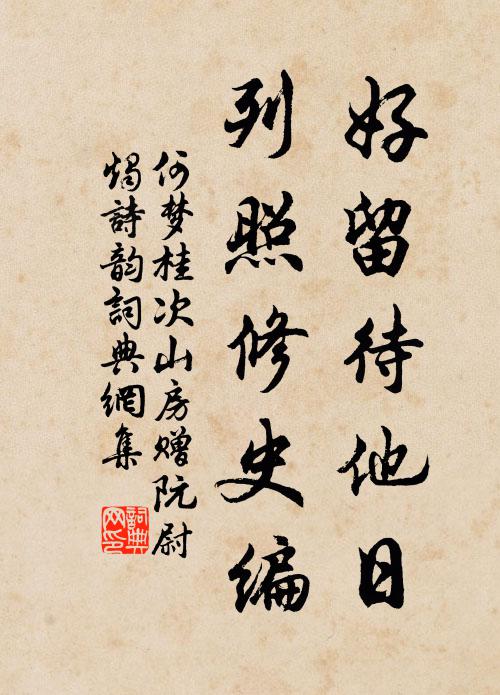 好留待他日
列照修史编
何梦桂次山房赠阮尉
烛詩韵詞典網集
詞典
网印